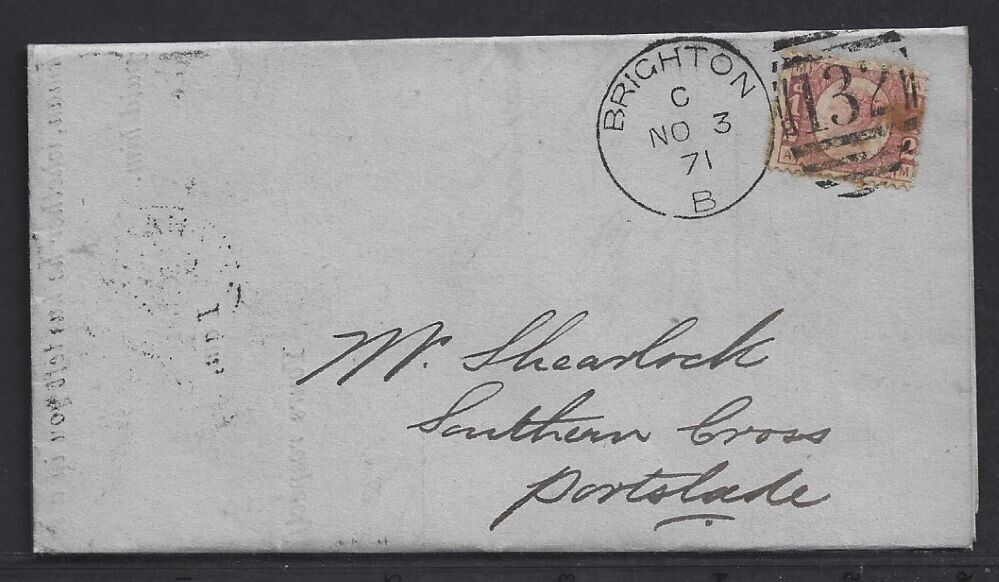 BRIGHTON
C
NO 3
71
B
132
Mr. Shearlock
Southern Cross
Portslade